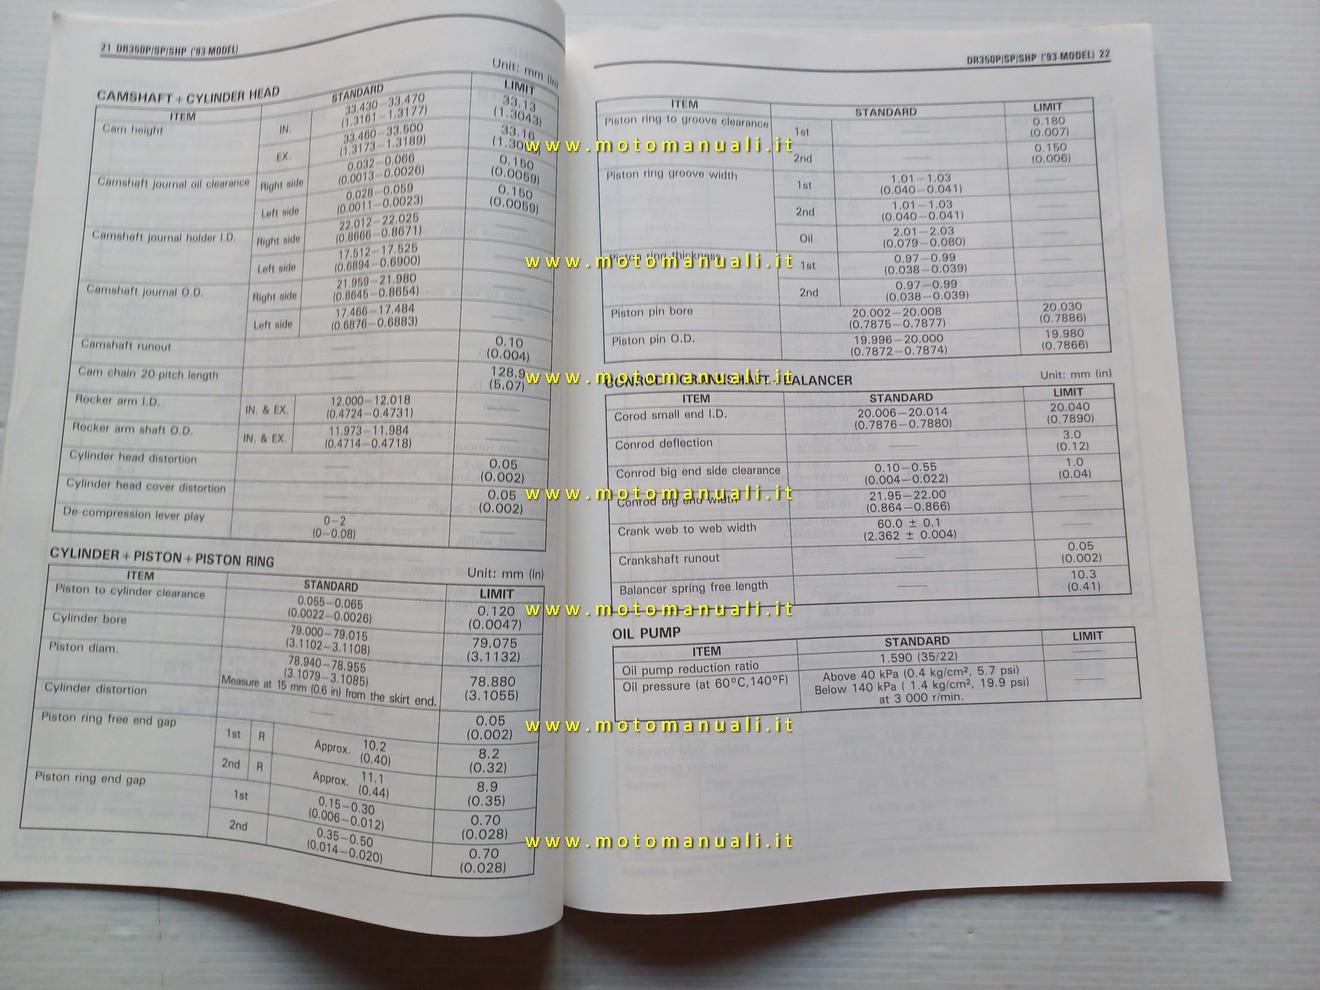 21 DR350P/SP/SHP ('93-MODEL)
CAMSHAFT + CYLINDER HEAD
Unit: mm (in)
ITEM STANDARD LIMIT
Cam height IN. 33.430–33.470 (1.3161–1.3177) 33.13 (1.3043)
EX. 33.460–33.500 (1.3173–1.3189) 33.16
Camshaft journal oil clearance Right side 0.032–0.066 (0.0013–0.0026) 0.150 (0.0059)
Left side 0.028–0.059 (0.0011–0.0023) 0.150 (0.0059)
Camshaft journal holder I.D. Right side 22.012–22.025 (0.8666–0.8671) ——
Left side 17.512–17.525 (0.6894–0.6900) ——
Camshaft journal O.D. Right side 21.959–21.980 (0.8645–0.8654) ——
Left side 17.466–17.484 (0.6876–0.6883) ——
Camshaft runout —— 0.10 (0.004)
Cam chain 20-pitch length —— 128.9 (5.07)
Rocker arm I.D. IN. & EX. 12.000–12.018 (0.4724–0.4731) ——
Rocker arm shaft O.D. IN. & EX. 11.973–11.984 (0.4714–0.4718) ——
Cylinder head distortion —— 0.05 (0.002)
Cylinder head cover distortion —— 0.05 (0.002)
De-compression lever play 0–2 (0–0.08) ——
CYLINDER + PISTON + PISTON RING
Unit: mm (in)
ITEM STANDARD LIMIT
Piston to cylinder clearance 0.055–0.065 (0.0022–0.0026) 0.120 (0.0047)
Cylinder bore 79.000–79.015 (3.1102–3.1108) 79.075 (3.1132)
Piston diam. 78.940–78.955 (3.1079–3.1085) 78.880 (3.1055)
Measure at 15 mm (0.6 in) from the skirt end.
Cylinder distortion —— 0.05 (0.002)
Piston ring free end gap 1st R Approx. 10.2 (0.40) 8.2 (0.32)
2nd R Approx. 11.1 (0.44) 8.9 (0.35)
Piston ring end gap 1st 0.15–0.30 (0.006–0.012) 0.70 (0.028)
2nd 0.35–0.50 (0.014–0.020) 0.70 (0.028)
DR350P/SP/SHP ('93-MODEL) 22
ITEM STANDARD LIMIT
Piston ring to groove clearance 1st —— 0.180 (0.007)
2nd —— 0.150 (0.006)
Piston ring groove width 1st 1.01–1.03 (0.040–0.041) ——
2nd 1.01–1.03 (0.040–0.041) ——
Oil 2.01–2.03 (0.079–0.080) ——
Piston ring thickness 1st 0.97–0.99 (0.038–0.039) ——
2nd 0.97–0.99 (0.038–0.039) ——
Piston pin bore 20.002–20.008 (0.7875–0.7877) 20.030 (0.7886)
Piston pin O.D. 19.996–20.000 (0.7872–0.7874) 19.980 (0.7866)
CONROD + CRANKSHAFT + BALANCER
Unit: mm (in)
ITEM STANDARD LIMIT
Corod small end I.D. 20.006–20.014 (0.7876–0.7880) 20.040 (0.7890)
Conrod deflection —— 3.0 (0.12)
Conrod big end side clearance 0.10–0.55 (0.004–0.022) 1.0 (0.04)
Conrod big end width 21.95–22.00 (0.864–0.866)
Crank web to web width 60.0 ± 0.1 (2.362 ± 0.004)
Crankshaft runout —— 0.05 (0.002)
Balancer spring free length —— 10.3 (0.41)
OIL PUMP
ITEM STANDARD LIMIT
Oil pump reduction ratio 1.590 (35/22) ——
Oil pressure (at 60°C,140°F) Above 40 kPa (0.4 kg/cm², 5.7 psi)
Below 140 kPa ( 1.4 kg/cm², 19.9 psi) ——
at 3 000 r/min.
www.motomanuali.it
www.motomanuali.it
www.motomanuali.it
www.motomanuali.it
www.motomanuali.it
www.motomanuali.it
www.motomanuali.it